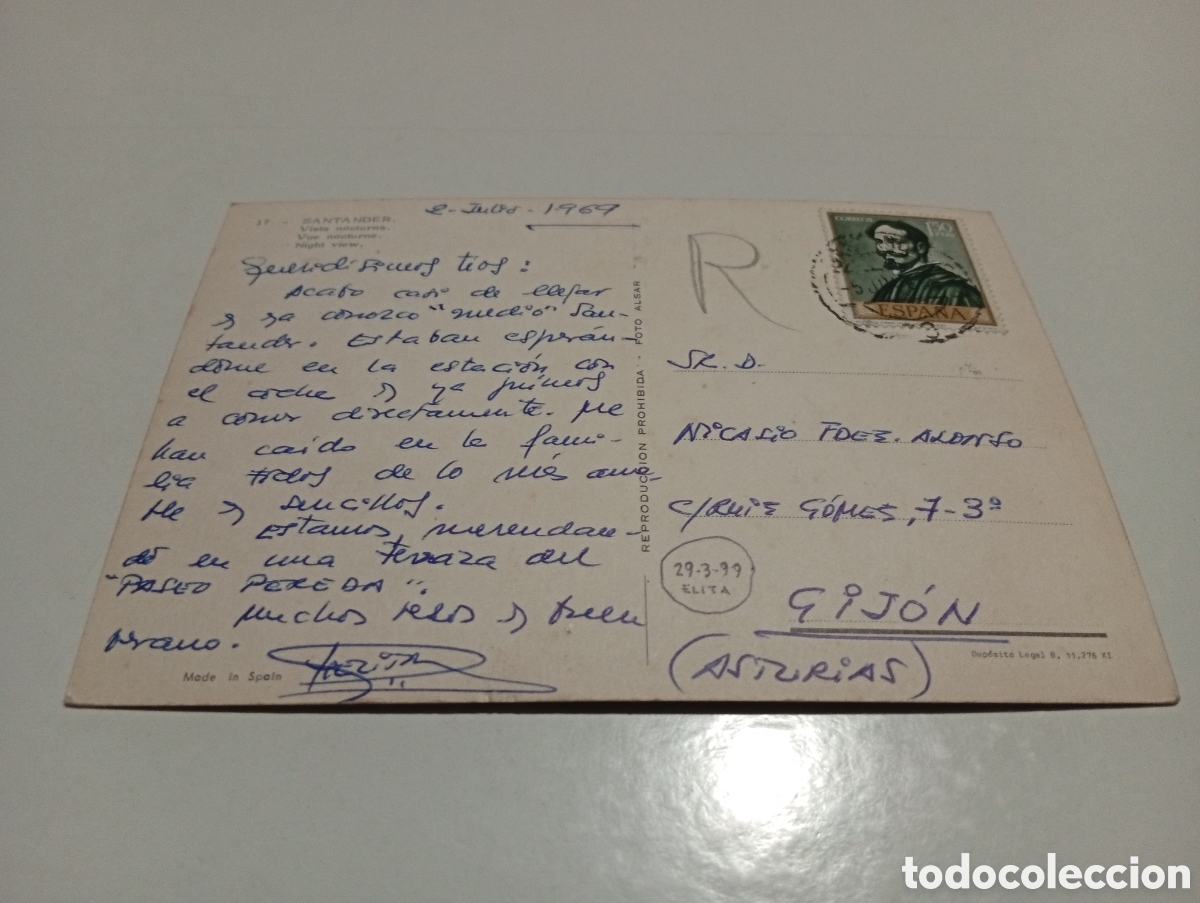 17 - SANTANDER.
Vista nocturna.
Vue nocturne.
Night view.
2-Julio-1969
Queridisimos tios:
Acabo casi de llegar
y ya conozco "medio" San-
tander. Estaban esperán-
dome en la estación con
el coche y ya fuimos
a comer directamente. Me
han caído en la fami-
lia todos de lo más ama-
ble y sencillos.
Estamos merendan-
do en una terraza del
"PASEO PEREDA".
Muchos besos y buen
verano.
Made in Spain
REPRODUCCION PROHIBIDA - FOTO ALSAR
R
CORREOS
1,50
PTAS
ESPAÑA
SR. D.
NICASIO FDEZ. ALONSO
C/RUIZ GÓMEZ, 7-3º
29-3-99
ELITA
GIJÓN
(ASTURIAS)
Depósito Legal B. 11,276 XI
todocoleccion